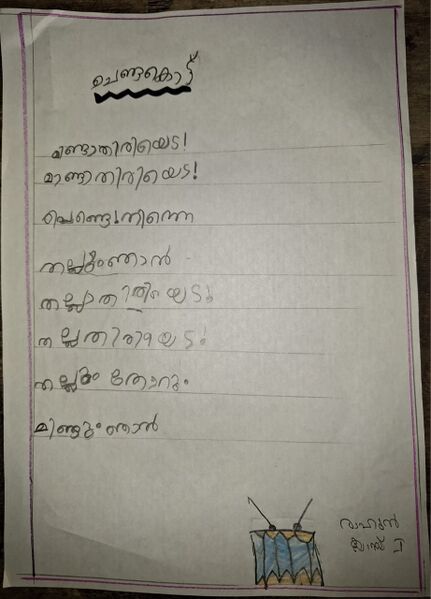 ചെണ്ടകൊട്ട്
മിണ്ടാതിരിയെട!
മാണ്ടാതിരിയെട!
ചെണ്ടെ!നിന്നെ
തല്ലുംഞാൻ
തല്ലാതിരിയെട!
തല്ലതിരിയെട!
തല്ലും തോറും
മിണ്ടുംഞാൻ
രാഹുൻ
ക്ലാസ് I